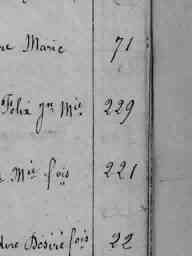 re Marie 71
Felix Jn Mie 229
Mie fois 221
dore Desiré fois 22